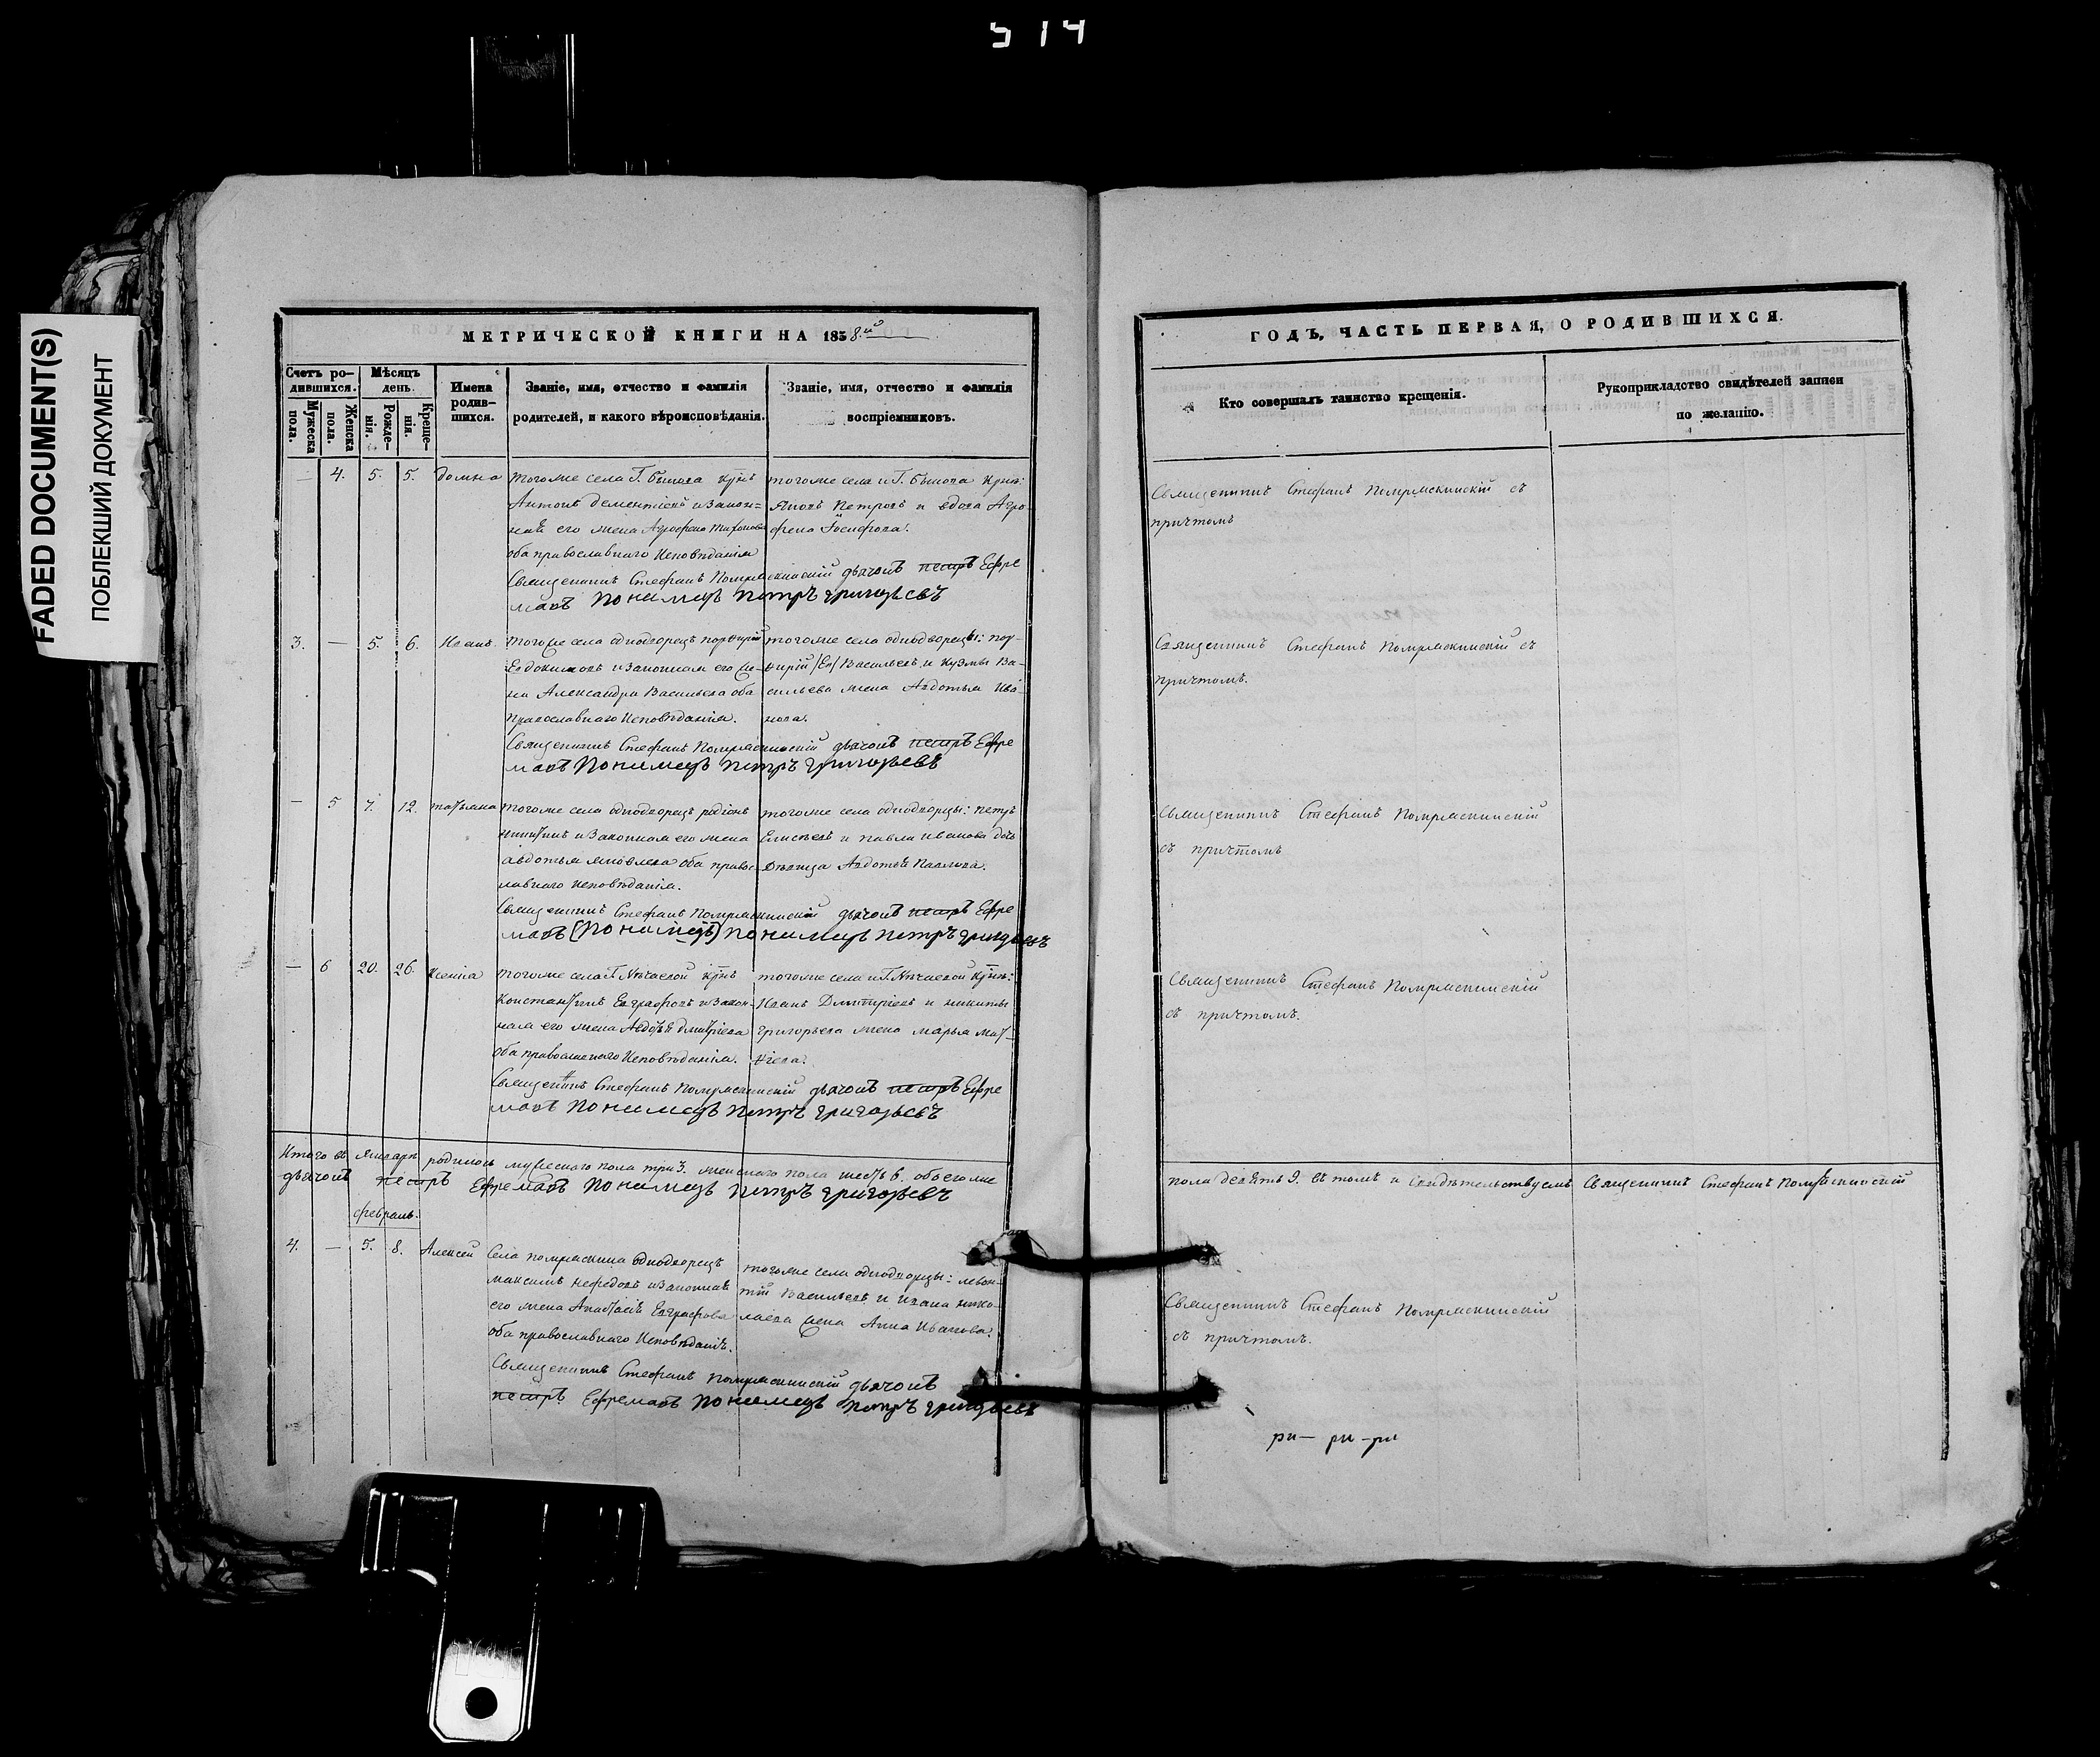 514
FADED DOCUMENT(S)
ПОБЛЕКШИЙ ДОКУМЕНТ
МЕТРИЧЕСКОЙ КНИГИ НА 1858.й
Счетъ ро-
дившихся.
Мѣсяцъ
день.
Мужеска
пола.
Женска
пола.
Рожде-
нія.
Креще-
нія.
Имена
родив-
шихся.
Званіе, имя, отчество и фамилія
родителей, и какого вѣроисповѣданія.
Званіе, имя, отчество и фамилія
воспріемниковъ.
— 4. 5. 5. Домна
тогоже села Г.
Антонъ Дементіевъ и закон=
ная его жена Агрофена Тихонова
оба православнаго исповѣданія
тогоже села и Г.
Петровъ и вдова Агро-
фена Іосифова.
Священникъ Стефанъ дьячокъ петръ Ефре
мовъ пономарь петръ григорьевъ
3. — 5. 6. Иванъ.
тогоже села однодворецъ порфирій
Евдокимовъ и законная его же-
на Александра Васильева оба
православнаго исповѣданія.
тогоже села однодворцы: пор-
фирій /Ев/ Васильевъ, и кузмы Ва-
сильева жена Авдотья Ива-
нова.
Священникъ Стефанъ дьячокъ петръ Ефре
мовъ пономарь петръ григорьевъ
— 5 7. 12. татьяна
тогоже села однодворецъ родіонъ
никитинъ и законная его жена
авдотья яковлева оба правос-
лавнаго исповѣданія.
тогоже села однодворцы: петръ
Елисѣевъ и павла иванова дочь
дѣвица Авдотья Павлова.
Священникъ Стефанъ дьячокъ петръ Ефре
мовъ (пономарь) пономарь петръ григорьевъ
— 6 20. 26. Ксенія
тогоже села Г. Нѣчаевой
Константинъ Евграфовъ и закон-
ная его жена Авдотья дмитріева
оба православнаго исповѣданія.
тогоже села и Г. Нѣчаевой
Иванъ Дмитріевъ и никиты
григорьева жена марья мат-
ѳіева.
Священникъ Стефанъ дьячокъ петръ Ефре
мовъ пономарь петръ григорьевъ
Итого въ январѣ родилось мужескаго пола три 3. женскаго пола шесть 6. обоегоже
дьячокъ петръ Ефремовъ пономарь петръ григорьевъ
февраль.
4. — 5. 8. Алексей
Села однодворецъ
максимъ нефедовъ и законная
его жена Анастасія Евграфова
оба православнаго исповѣданія.
тогоже села однодворцы: левон-
тій Васильевъ и ивана нико-
лаева жена Анна Иванова.
Священникъ Стефанъ дьячокъ
петръ Ефремовъ пономарь петръ григорьевъ
ГОДЪ, ЧАСТЬ ПЕРВАЯ, О РОДИВШИХСЯ.
Кто совершалъ таинство крещенія.
Рукоприкладство свидѣтелей записи
по желанію.
Священникъ Стефанъ съ
причтомъ
Священникъ Стефанъ съ
причтомъ.
Священникъ Стефанъ
съ причтомъ
Священникъ Стефанъ
съ причтомъ.
пола девять 9. въ томъ и свидѣтельствуемъ Священникъ Стефанъ
Священникъ Стефанъ
съ причтомъ.
ри— ри —ри